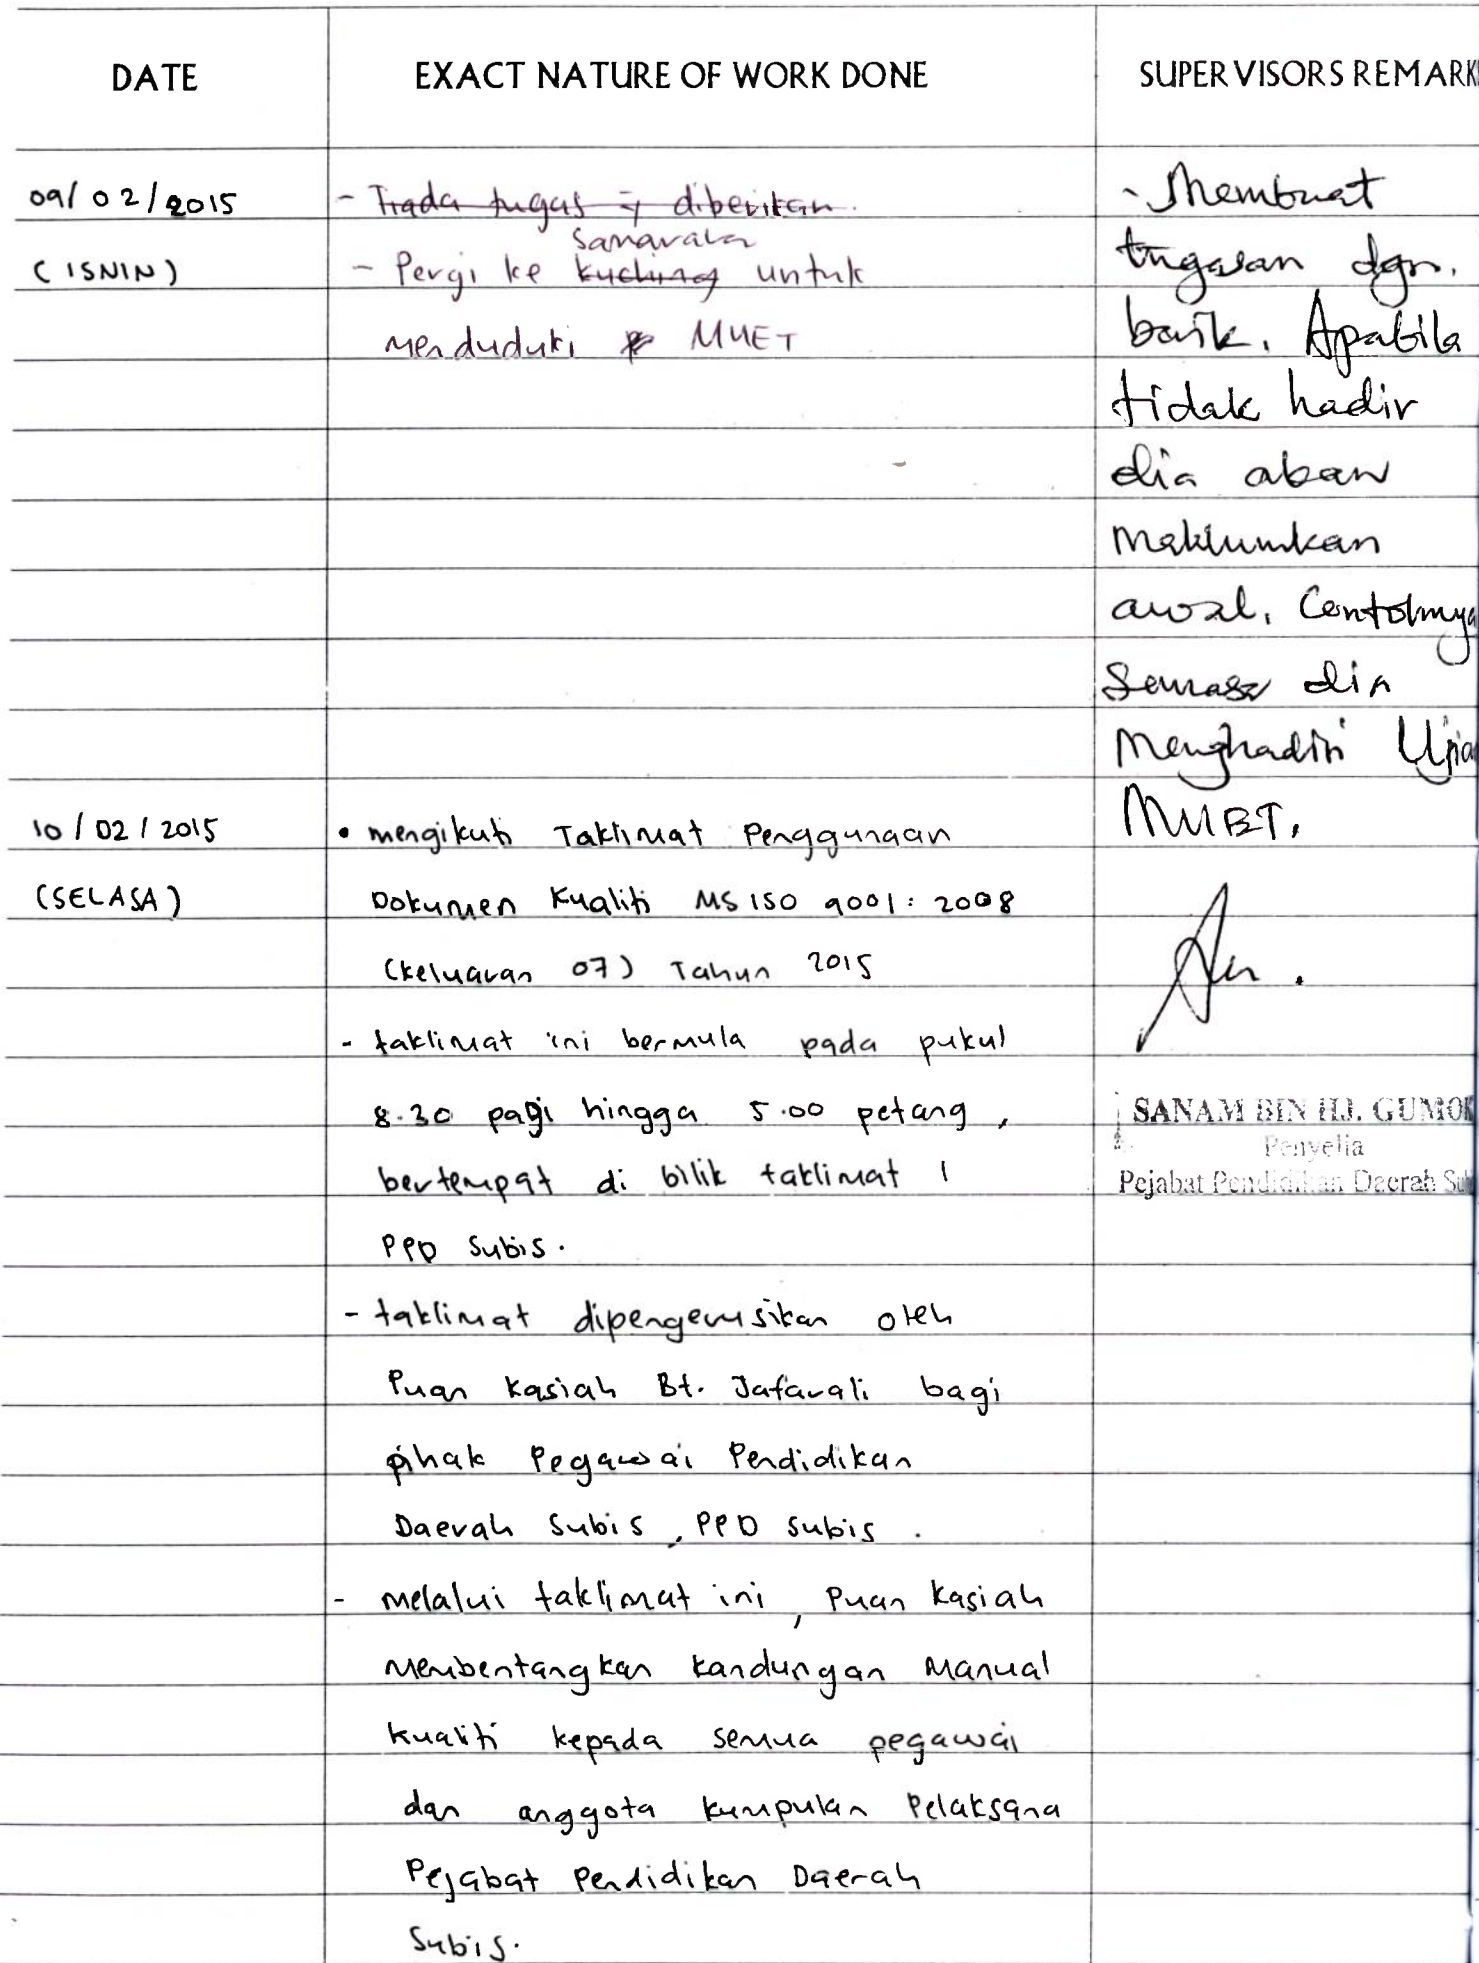 DATE
EXACT NATURE OF WORK DONE
SUPERVISORS REMARK
09/02/2015
(ISNIN)
- Tiada tugas yg diberikan.
Samarahan
- Pergi ke kuching untuk
menduduki MUET
- Membuat
tugasan dgn.
baik. Apabila
tidak hadir
dia akan
maklumkan
awal. Contohnya
Semasa dia
Menghadiri Ujia
MUET.
10/02/2015
(SELASA)
• mengikuti Taklimat Penggunaan
Dokumen Kualiti MS ISO 9001:2008
(keluaran 07) Tahun 2015
- taklimat ini bermula pada pukul
8.30 pagi hingga 5.00 petang,
bertempat di bilik taklimat 1
PPD Subis.
- taklimat dipengerusikan oleh
Puan Kasiah Bt. Jafarali bagi
pihak Pegawai Pendidikan
Daerah Subis, PPD Subis.
- melalui taklimat ini, Puan Kasiah
membentangkan kandungan Manual
Kualiti kepada semua pegawai
dan anggota kumpulan Pelaksana
Pejabat Pendidikan Daerah
Subis.
SANAM BIN HJ. GUMO
Penyelia
Pejabat Pendidikan Daerah Su